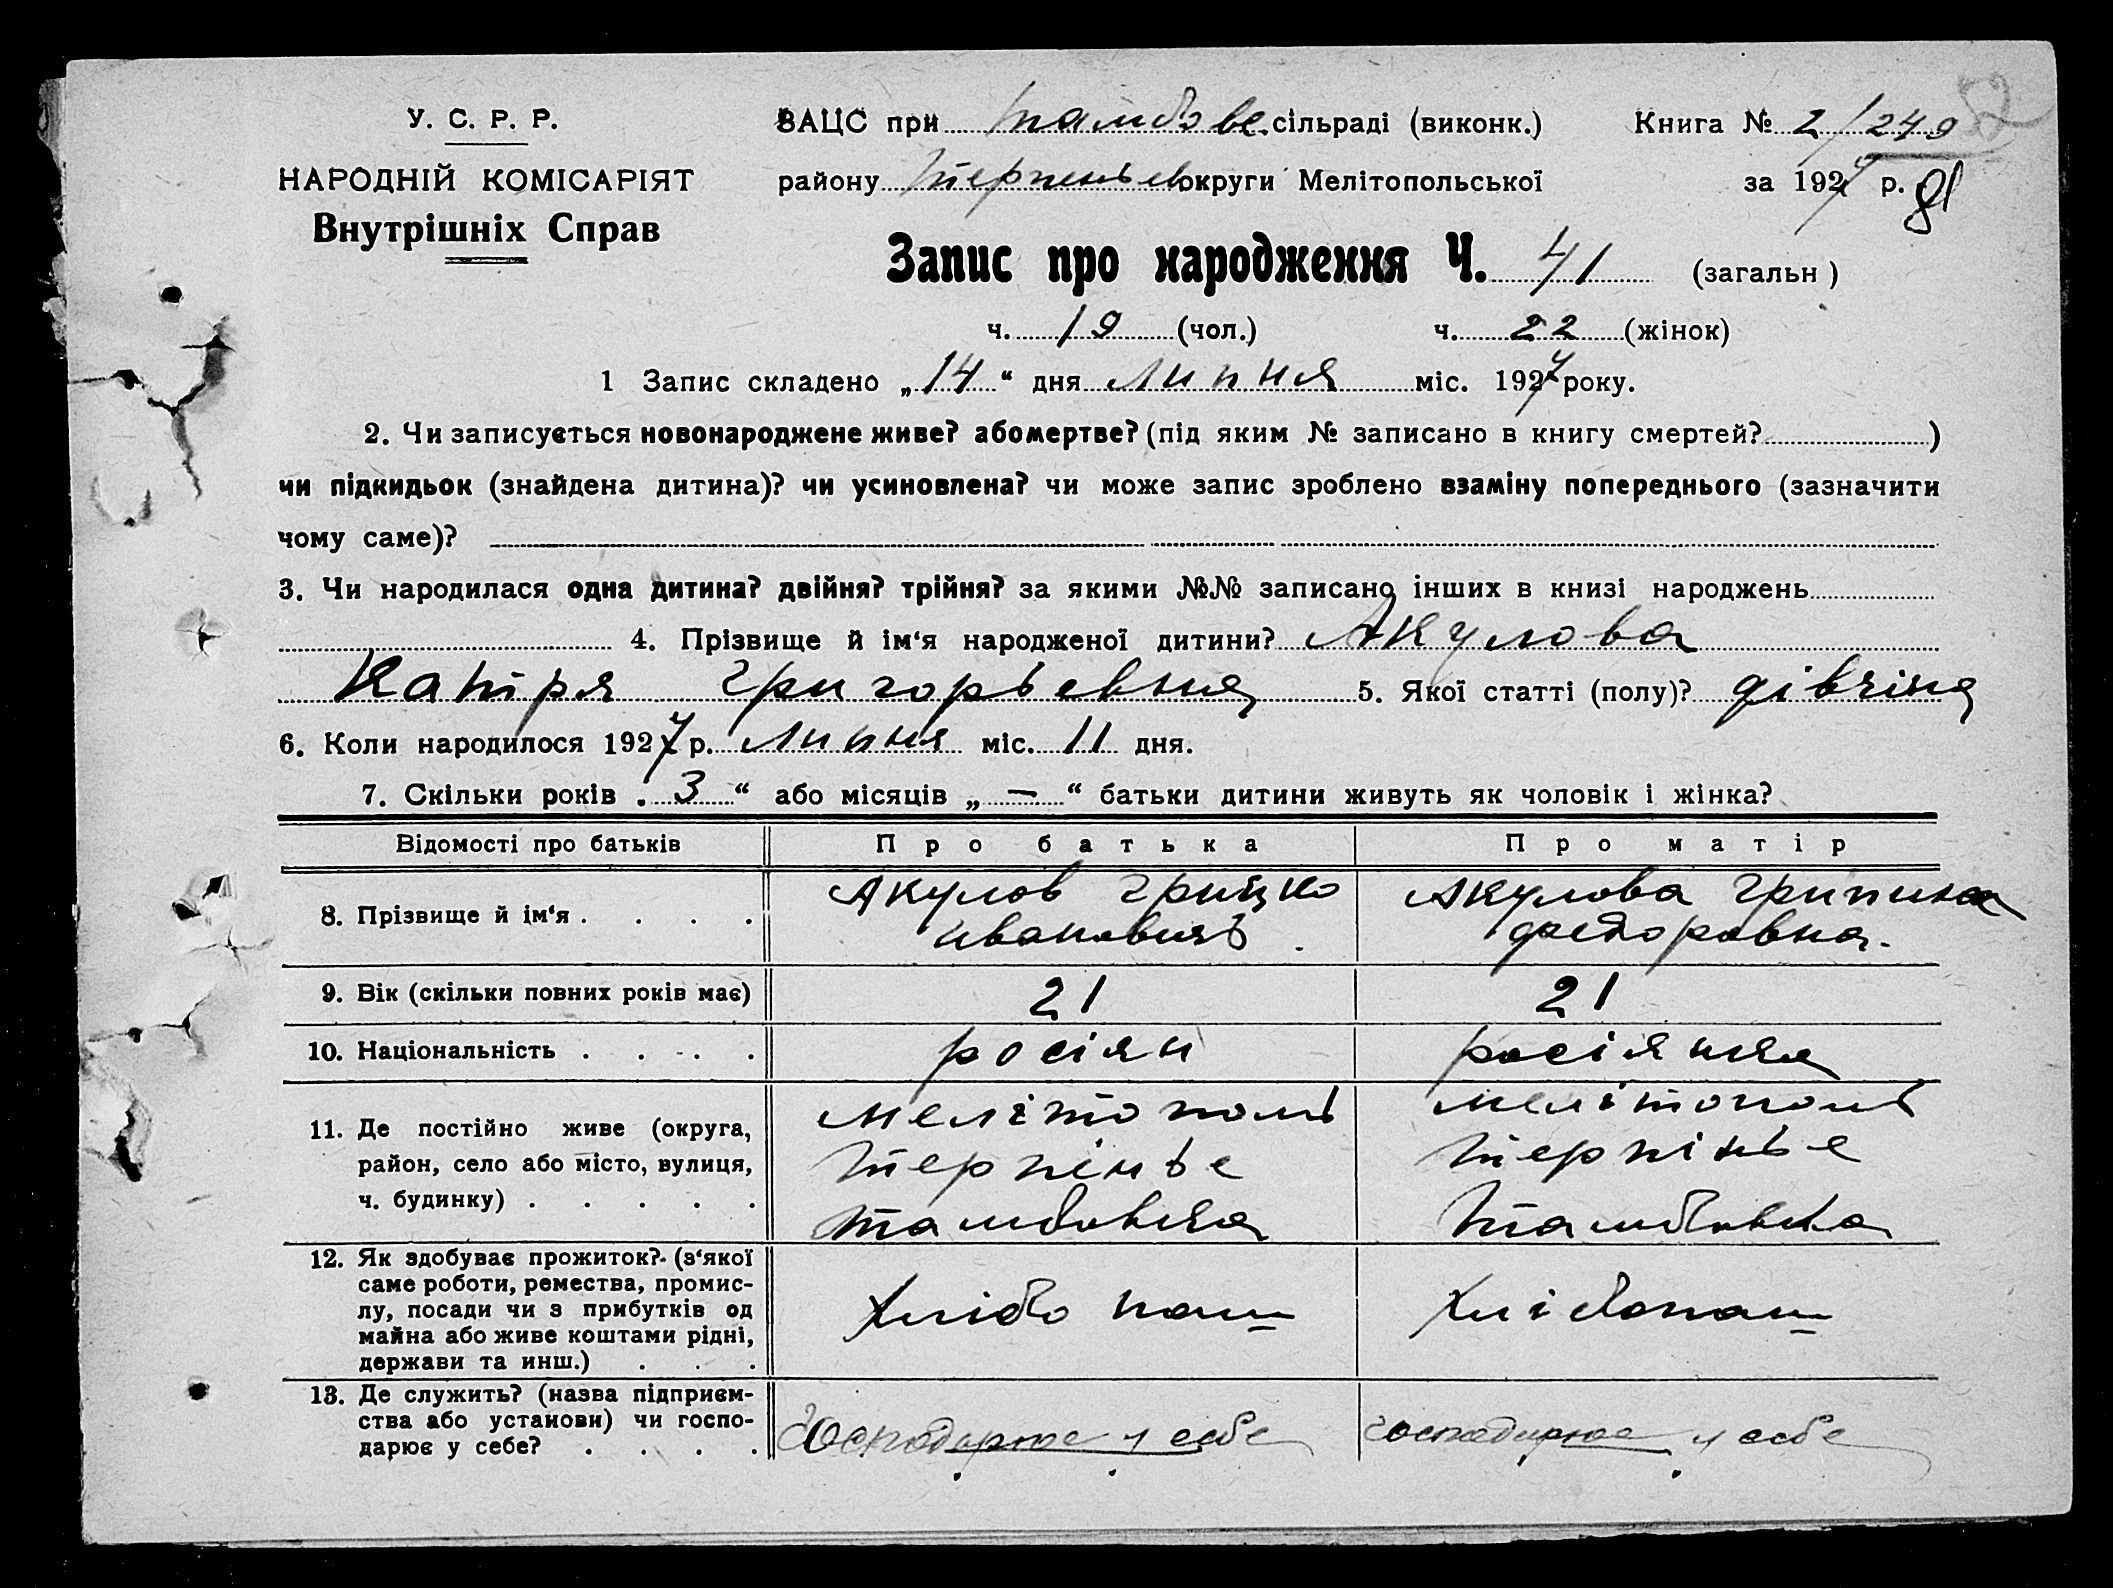 У. С. Р. Р.
НАРОДНІЙ КОМІСАРІЯТ
Внутрішніх Справ
ЗАЦС при Тамбовс. сільраді (виконк.) Книга № 2/249
району Терпеньев округи Мелітопольської за 1927 р.
Запис про народження Ч. 41 (загальн)
ч. 19 (чол.) ч. 22 (жінок)
1 Запис складено „14“ дня Липня міс. 1927 року.
2. Чи записується новонароджене живе? або мертве? (під яким № записано в книгу смертей? )
чи підкидьок (знайдена дитина)? чи усиновлена? чи може запис зроблено взаміну попереднього (зазначити
чому саме)?
3. Чи народилася одна дитина? двійня? трійня? за якими №№ записано інших в книзі народжень
4. Прізвище й ім‘я народженої дитини? Акулова
Катря Григорьевна 5. Якої статті (полу)? дівчіна
6. Коли народилося 1927 р. Липня міс. 11 дня.
7. Скільки років „3“ або місяців „—“ батьки дитини живуть як чоловік і жінка?
Відомості про батьків Про батька Про матір
8. Прізвище й ім‘я . . . . Акулов Грицко Ивановичь Акулова Грипина Федоровна.
9. Вік (скільки повних років має) 21 21
10. Національність . . . . росіян росіянка
11. Де постійно живе (округа, Мелітополь Мелітополь
район, село або місто, вулиця, Терпінье Терпінье
ч. будинку) . . . . . Тамбовка Тамбовка
12. Як здобуває прожиток? (з‘якої
саме роботи, ремества, промис-
лу, посади чи з прибутків од Хлібопаш Хлібопаш
майна або живе коштами рідні,
держави та инш.) . . .
13. Де служить? (назва підприєм-
ства або установи) чи госпо- Господарює у себе Господарює у себе
дарює у себе? . . . .